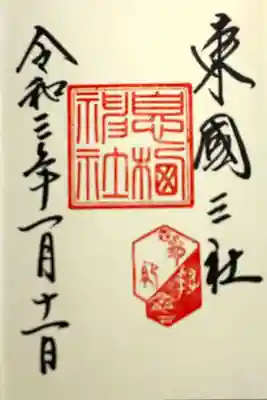 東國三社
息栖神社
令和三年一月十一日